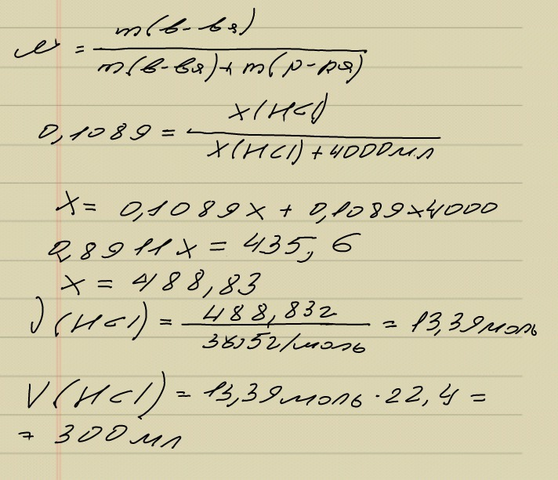 ω = m(в-вя) / m(в-вя) + m(р-ря)
0,1089 = x(HCl) / x(HCl) + 4000мл
x = 0,1089x + 0,1089×4000
0,8911x = 435,6
x = 488,83
ν(HCl) = 488,83г / 36,5г/моль = 13,39моль
V(HCl) = 13,39моль · 22,4 =
= 300мл